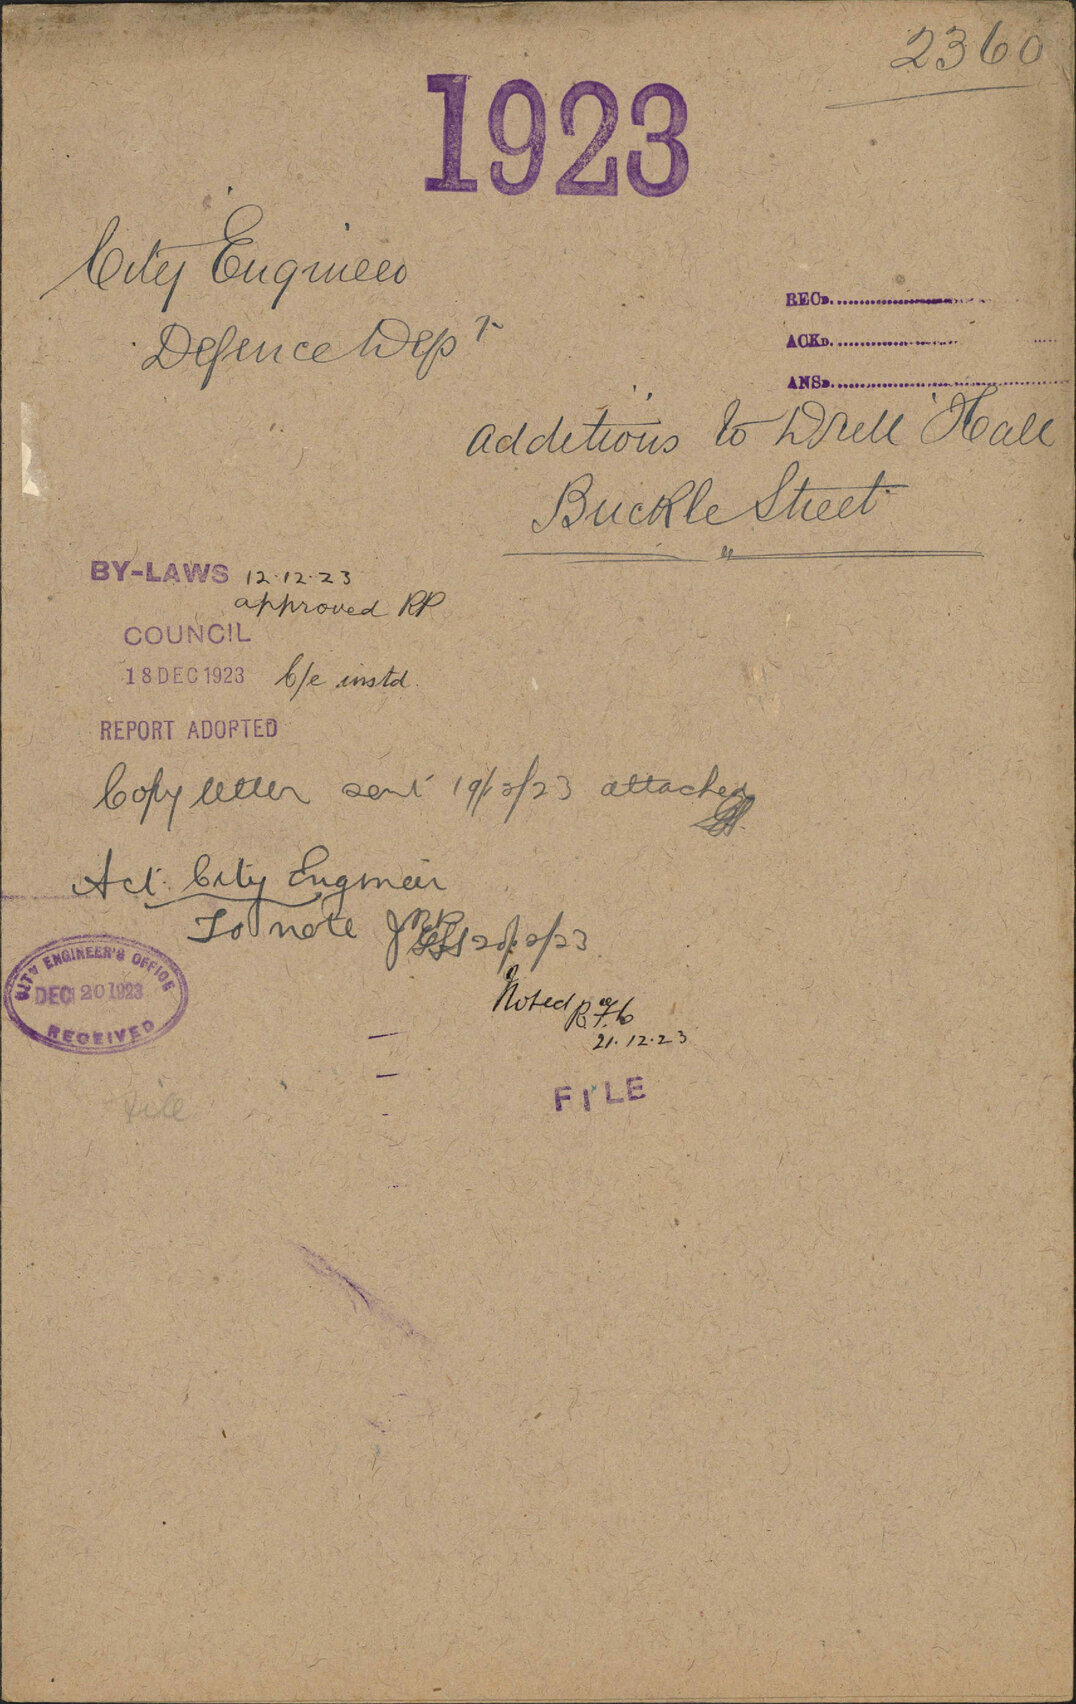 2360
1923
City Engineer
Defence Dept
RECD.
ACKD.
ANSD.
Additions to Drill Hall
Buckle Street
BY-LAWS 12.12.23
approved RP
COUNCIL
18 DEC 1923 C/e instd.
REPORT ADOPTED
Copy letter sent 19/12/23 attached
Act. City Engineer
To note 20/12/23
CITY ENGINEER'S OFFICE
DEC 20 1923
RECEIVED
Noted
21.12.23
FILE
file